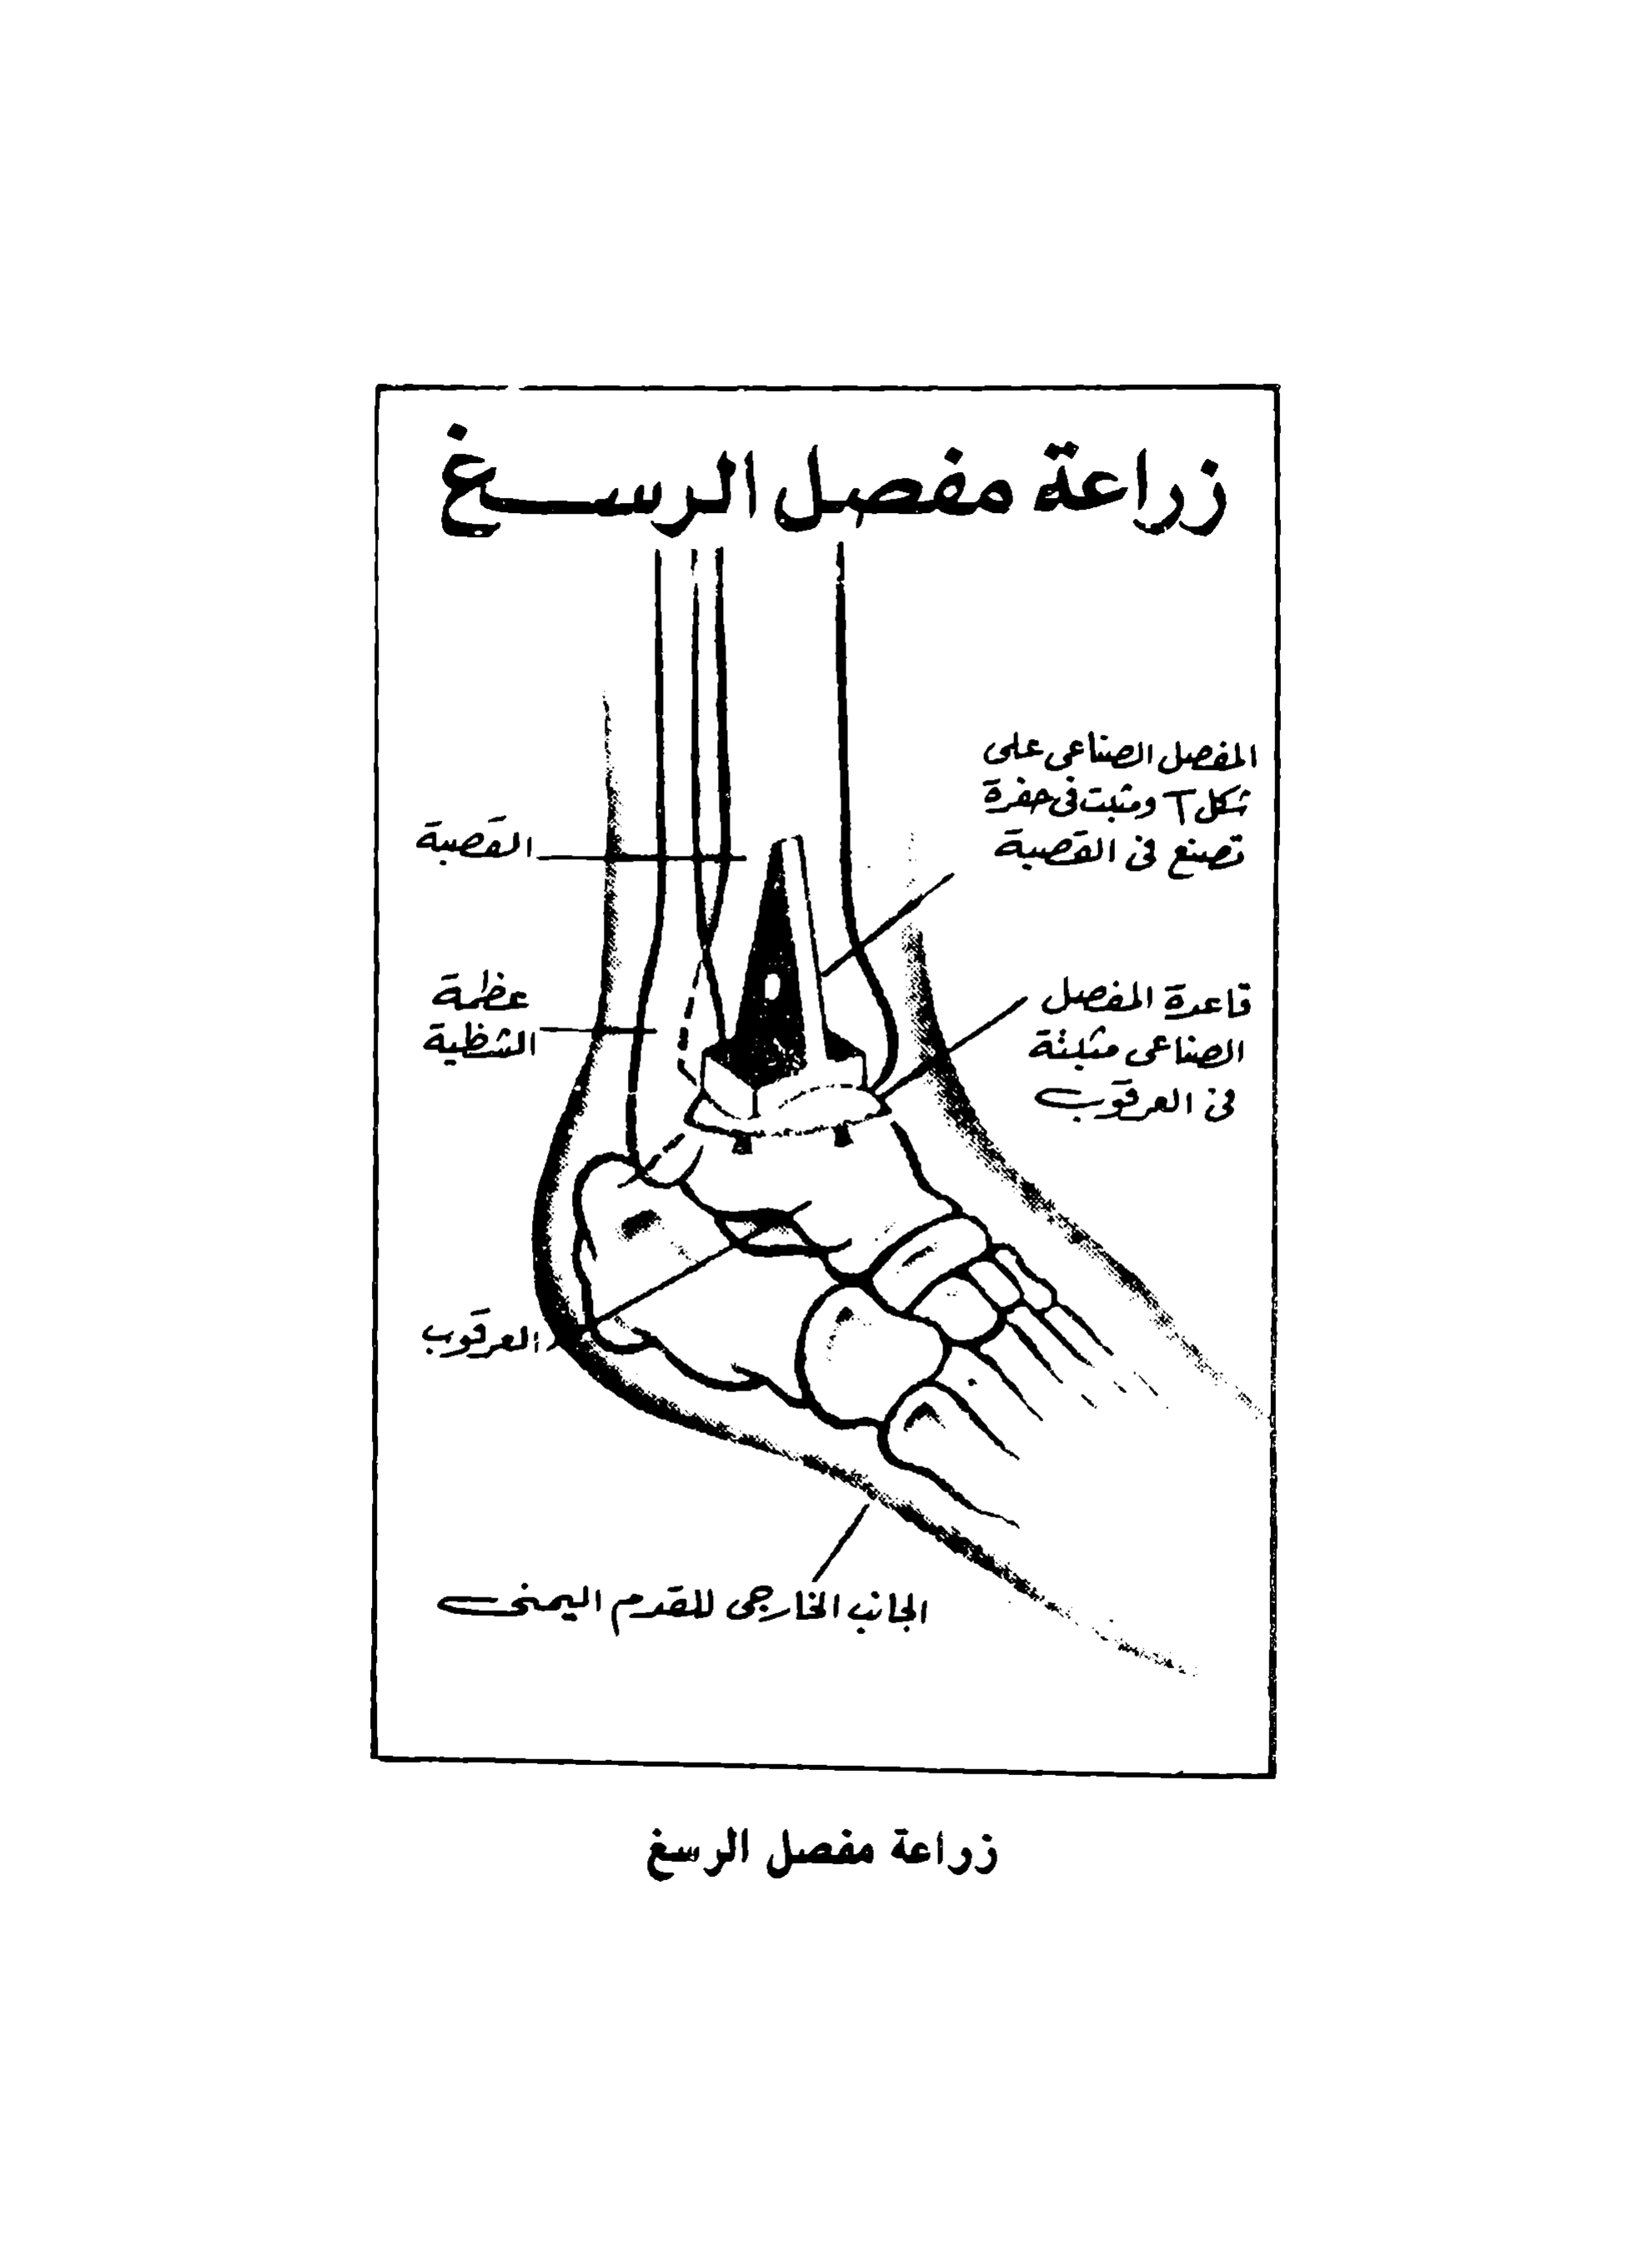 زراعة مفصل الرسغ
المفصل الصناعى على
شكل T ومثبت فى حفرة
تصنع فى القصبة
القصبة
قاعدة المفصل
الصناعى مثبتة
فى العرقوب
عظمة
الشظية
العرقوب
الجانب الخارجى للقدم اليمنى
زراعة مفصل الرسغ